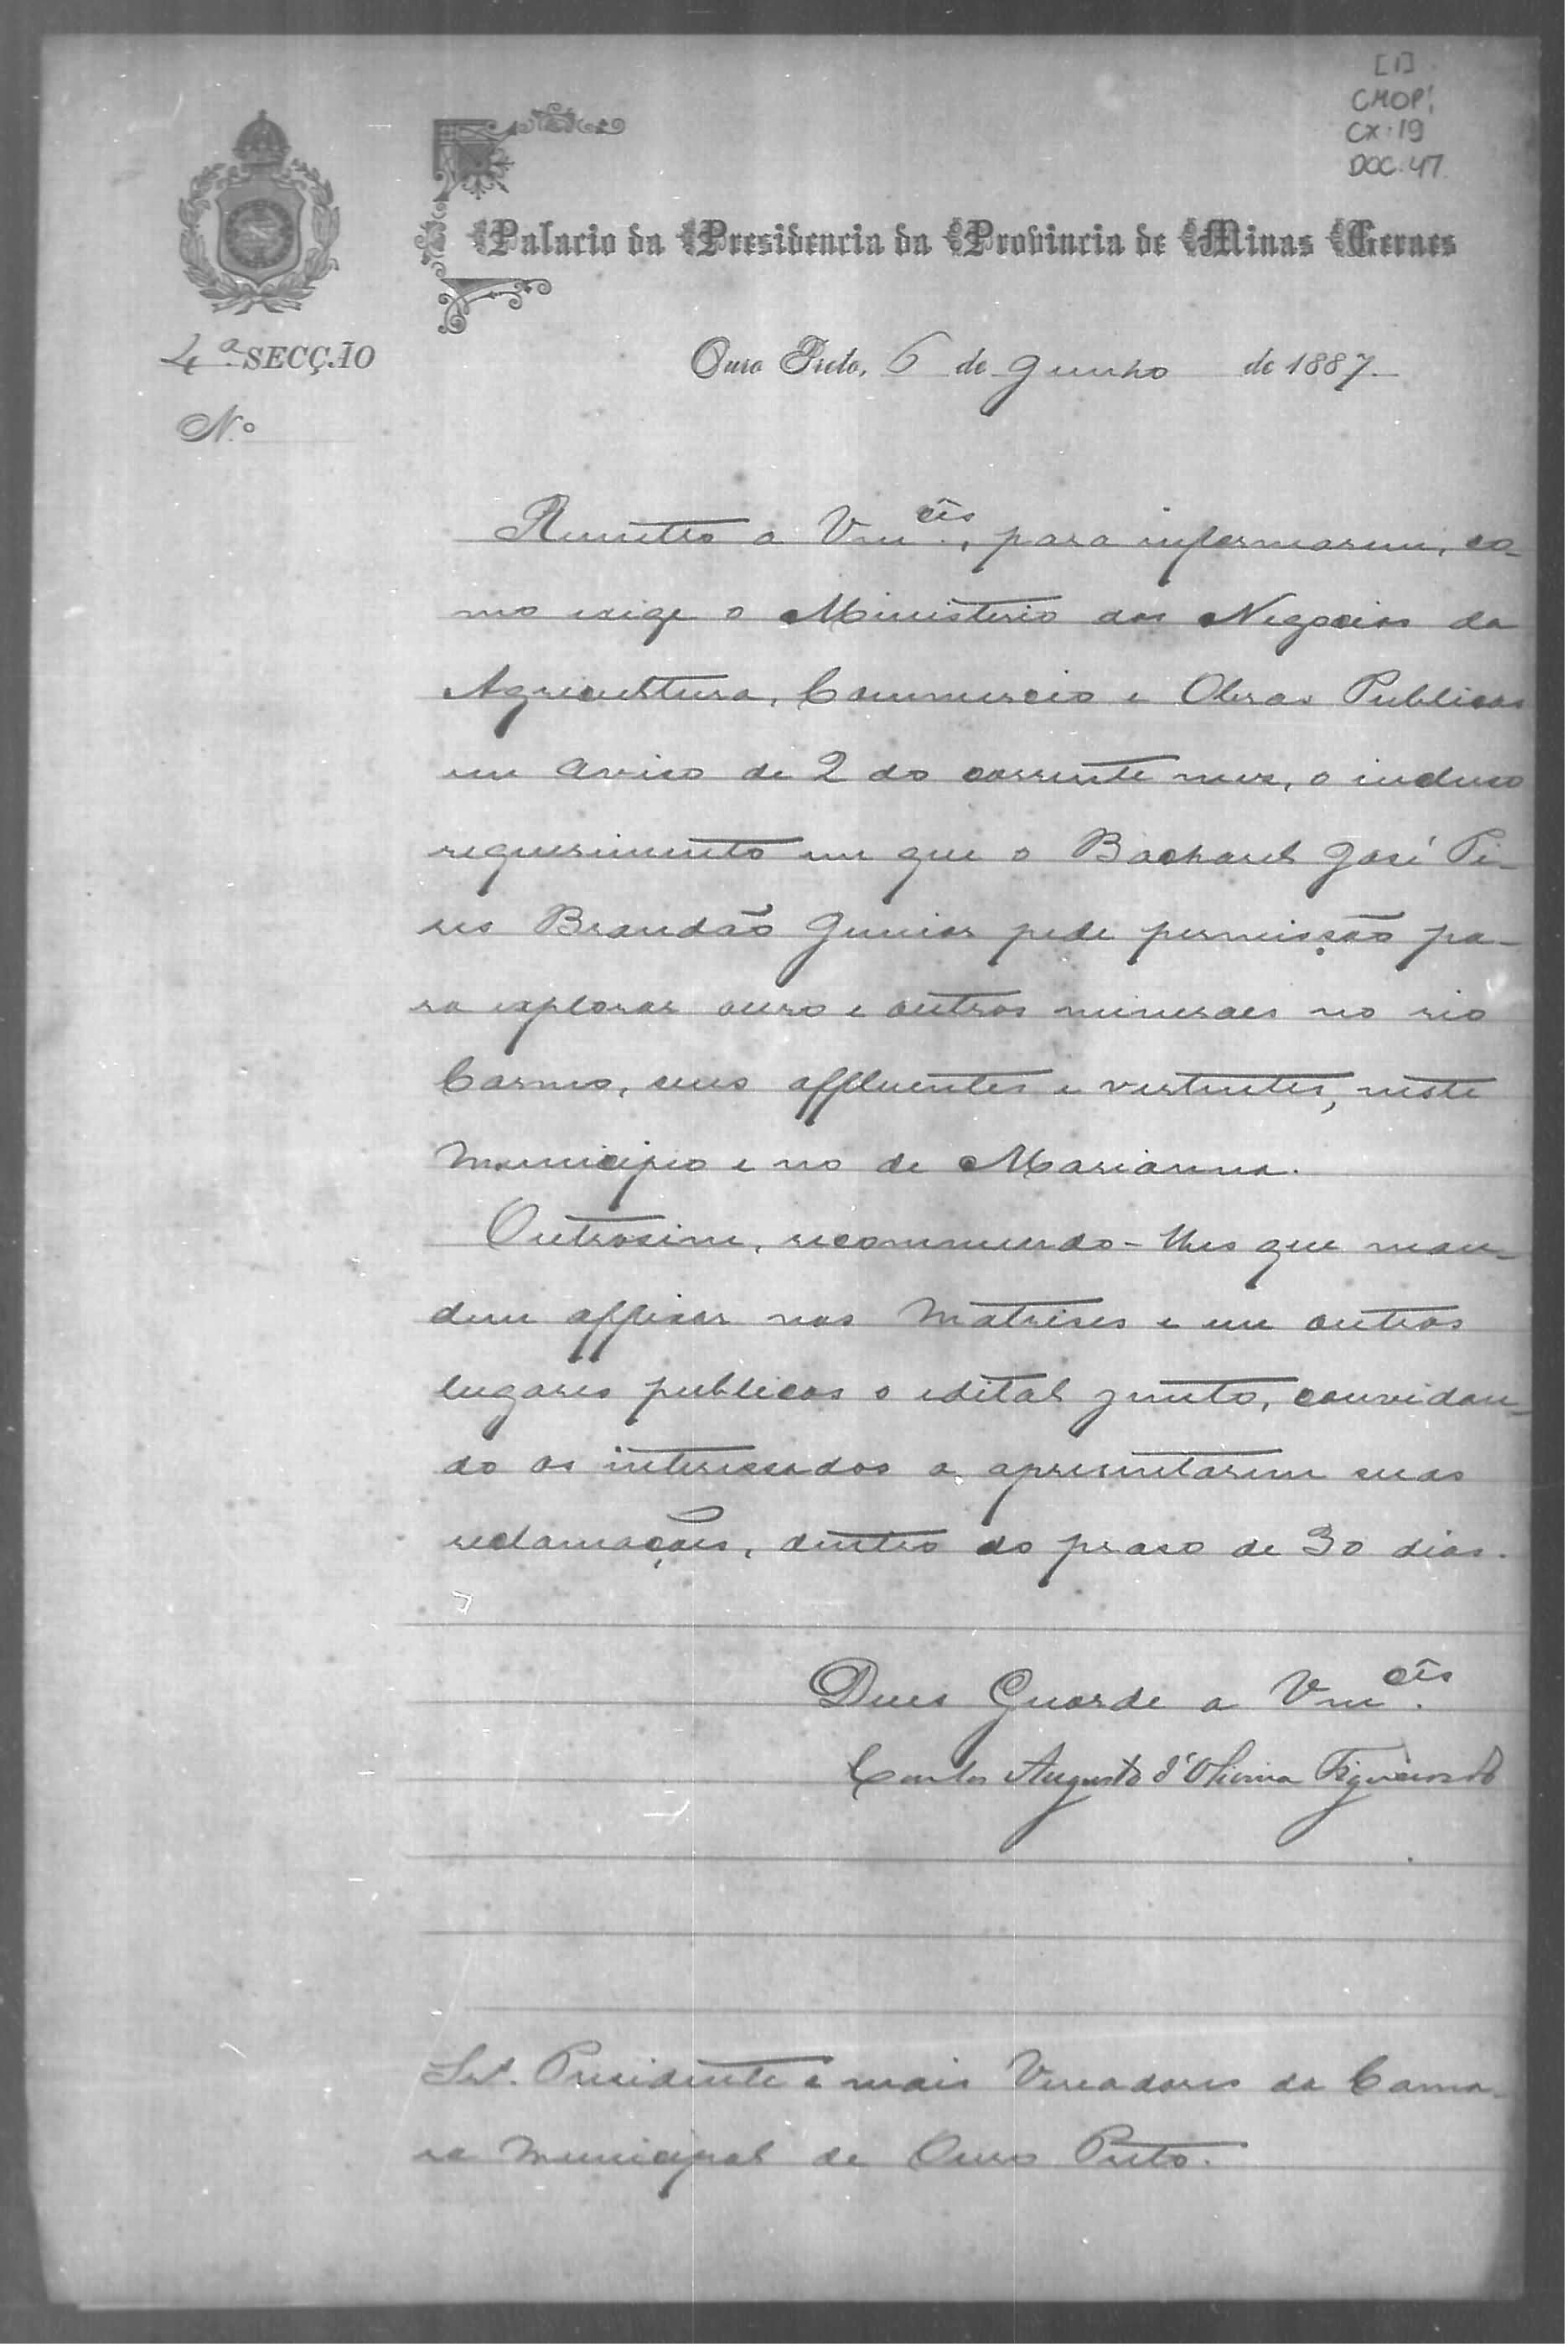 [1]
CMOP;
CX.19
DOC.47.
Palacio da Presidencia da Provincia de Minas Geraes
4ª SECÇÃO
Ouro Preto, 6 de Junho de 1887
N.º
Remetto a Vm.cês, para informarem, co-
mo exige o Ministerio dos Negocios da
Agricultura, Commercio e Obras Publicas
em aviso de 2 do corrente mez, o incluso
requerimento em que o Bacharel José Pi-
res Brandão Junior pede permissão pa-
ra explorar ouro e outros mineraes no rio
Carmo, seus affluentes e vertentes, neste
Municipio e no de Marianna.
Outrosim, recommendo-lhes que man-
dem affixar nas Matrises e em outros
lugares publicos o edital junto, convidan-
do os interessados a apresentarem suas
reclamações, dentro do praso de 30 dias.
Deus Guarde a Vm.cês
Carlos Augusto d'Oliveira Figueiredo
Snrs. Presidente e mais Vereadores da Cama-
ra Municipal de Ouro Preto.